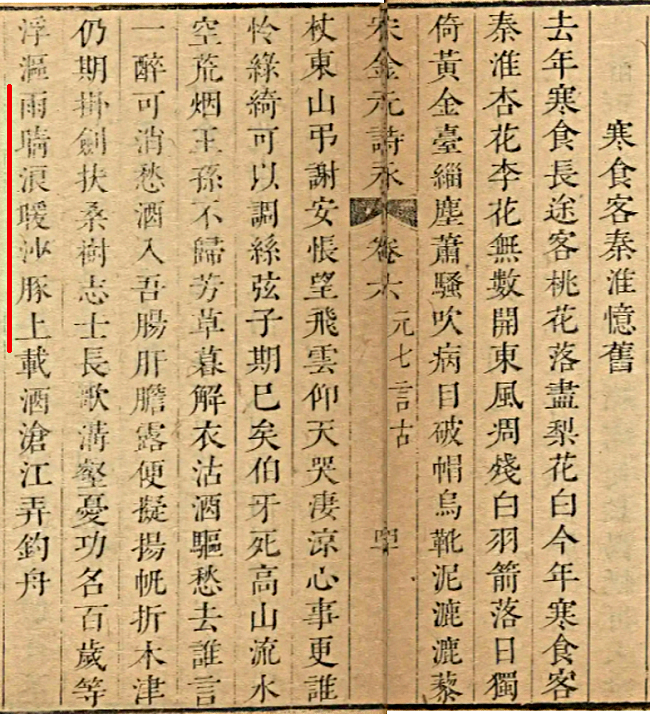 寒食客秦淮憶舊
去年寒食長途客桃花落盡梨花白今年寒食客
秦淮杏花李花無數開東風凋殘白羽箭落日獨
倚黃金臺緇塵蕭騷吹病目破帽烏靴泥漉漉藜
宋金元詩永 卷六 元七言古
杖東山弔謝安悵望飛雲仰天哭淒涼心事更誰
怜綠綺可以調絲弦子期已矣伯牙死高山流水
空荒烟王孫不歸芳草暮解衣沽酒驅愁去誰言
一醉可消愁酒入吾腸肝膽露便擬揚帆折木津
仍期掛劍扶桑樹志士長歌溝壑憂功名百歲等
浮漚雨晴浪暖沙豚上載酒滄江弄釣舟